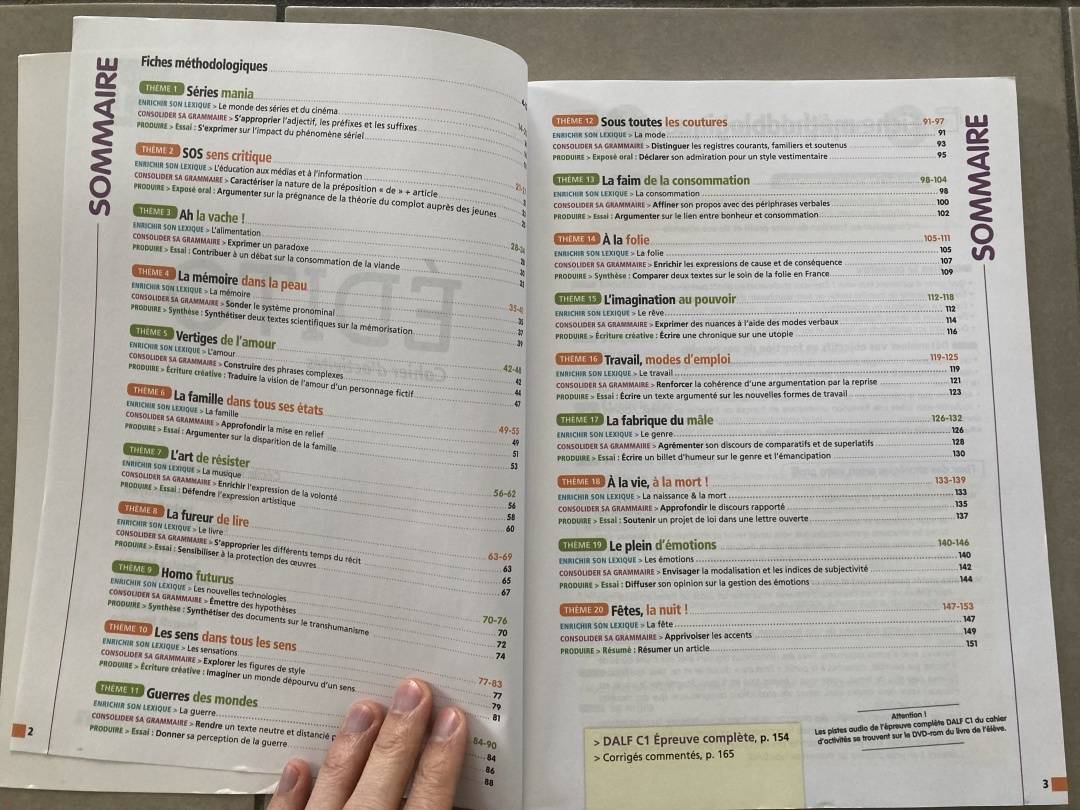 SOMMAIRE
Fiches méthodologiques
THÈME 1 Séries mania
ENRICHIR SON LEXIQUE > Le monde des séries et du cinéma
CONSOLIDER SA GRAMMAIRE > S'approprier l'adjectif, les préfixes et les suffixes
PRODUIRE > Essai : S'exprimer sur l'impact du phénomène sériel
THÈME 2 SOS sens critique
ENRICHIR SON LEXIQUE > L'éducation aux médias et à l'information
CONSOLIDER SA GRAMMAIRE > Caractériser la nature de la préposition « de » + article
PRODUIRE > Exposé oral : Argumenter sur la prégnance de la théorie du complot auprès des jeunes
THÈME 3 Ah la vache !
ENRICHIR SON LEXIQUE > L'alimentation
CONSOLIDER SA GRAMMAIRE > Exprimer un paradoxe
PRODUIRE > Essai : Contribuer à un débat sur la consommation de la viande
THÈME 4 La mémoire dans la peau
ENRICHIR SON LEXIQUE > La mémoire
CONSOLIDER SA GRAMMAIRE > Sonder le système pronominal
PRODUIRE > Synthèse : Synthétiser deux textes scientifiques sur la mémorisation
THÈME 5 Vertiges de l'amour 42-48
ENRICHIR SON LEXIQUE > L'amour 42
CONSOLIDER SA GRAMMAIRE > Construire des phrases complexes 44
PRODUIRE > Écriture créative : Traduire la vision de l'amour d'un personnage fictif 47
THÈME 6 La famille dans tous ses états 49-55
ENRICHIR SON LEXIQUE > La famille 49
CONSOLIDER SA GRAMMAIRE > Approfondir la mise en relief 51
PRODUIRE > Essai : Argumenter sur la disparition de la famille 53
THÈME 7 L'art de résister 56-62
ENRICHIR SON LEXIQUE > La musique 56
CONSOLIDER SA GRAMMAIRE > Enrichir l'expression de la volonté 58
PRODUIRE > Essai : Défendre l'expression artistique 60
THÈME 8 La fureur de lire 63-69
ENRICHIR SON LEXIQUE > Le livre 63
CONSOLIDER SA GRAMMAIRE > S'approprier les différents temps du récit 65
PRODUIRE > Essai : Sensibiliser à la protection des œuvres 67
THÈME 9 Homo futurus 70-76
ENRICHIR SON LEXIQUE > Les nouvelles technologies 70
CONSOLIDER SA GRAMMAIRE > Émettre des hypothèses 72
PRODUIRE > Synthèse : Synthétiser des documents sur le transhumanisme 74
THÈME 10 Les sens dans tous les sens 77-83
ENRICHIR SON LEXIQUE > Les sensations 77
CONSOLIDER SA GRAMMAIRE > Explorer les figures de style 79
PRODUIRE > Écriture créative : Imaginer un monde dépourvu d'un sens 81
THÈME 11 Guerres des mondes 84-90
ENRICHIR SON LEXIQUE > La guerre 84
CONSOLIDER SA GRAMMAIRE > Rendre un texte neutre et distancié 86
PRODUIRE > Essai : Donner sa perception de la guerre 88
2
SOMMAIRE
THÈME 12 Sous toutes les coutures 91-97
ENRICHIR SON LEXIQUE > La mode 91
CONSOLIDER SA GRAMMAIRE > Distinguer les registres courants, familiers et soutenus 93
PRODUIRE > Exposé oral : Déclarer son admiration pour un style vestimentaire 95
THÈME 13 La faim de la consommation 98-104
ENRICHIR SON LEXIQUE > La consommation 98
CONSOLIDER SA GRAMMAIRE > Affiner son propos avec des périphrases verbales 100
PRODUIRE > Essai : Argumenter sur le lien entre bonheur et consommation 102
THÈME 14 À la folie 105-111
ENRICHIR SON LEXIQUE > La folie 105
CONSOLIDER SA GRAMMAIRE > Enrichir les expressions de cause et de conséquence 107
PRODUIRE > Synthèse : Comparer deux textes sur le soin de la folie en France 109
THÈME 15 L'imagination au pouvoir 112-118
ENRICHIR SON LEXIQUE > Le rêve 112
CONSOLIDER SA GRAMMAIRE > Exprimer des nuances à l'aide des modes verbaux 114
PRODUIRE > Écriture créative : Écrire une chronique sur une utopie 116
THÈME 16 Travail, modes d'emploi 119-125
ENRICHIR SON LEXIQUE > Le travail 119
CONSOLIDER SA GRAMMAIRE > Renforcer la cohérence d'une argumentation par la reprise 121
PRODUIRE > Essai : Écrire un texte argumenté sur les nouvelles formes de travail 123
THÈME 17 La fabrique du mâle 126-132
ENRICHIR SON LEXIQUE > Le genre 126
CONSOLIDER SA GRAMMAIRE > Agrémenter son discours de comparatifs et de superlatifs 128
PRODUIRE > Essai : Écrire un billet d'humeur sur le genre et l'émancipation 130
THÈME 18 À la vie, à la mort ! 133-139
ENRICHIR SON LEXIQUE > La naissance & la mort 133
CONSOLIDER SA GRAMMAIRE > Approfondir le discours rapporté 135
PRODUIRE > Essai : Soutenir un projet de loi dans une lettre ouverte 137
THÈME 19 Le plein d'émotions 140-146
ENRICHIR SON LEXIQUE > Les émotions 140
CONSOLIDER SA GRAMMAIRE > Envisager la modalisation et les indices de subjectivité 142
PRODUIRE > Essai : Diffuser son opinion sur la gestion des émotions 144
THÈME 20 Fêtes, la nuit ! 147-153
ENRICHIR SON LEXIQUE > La fête 147
CONSOLIDER SA GRAMMAIRE > Apprivoiser les accents 149
PRODUIRE > Résumé : Résumer un article 151
> DALF C1 Épreuve complète, p. 154
> Corrigés commentés, p. 165
Attention !
Les pistes audio de l'épreuve complète DALF C1 du cahier
d'activités se trouvent sur le DVD-rom du livre de l'élève.
3